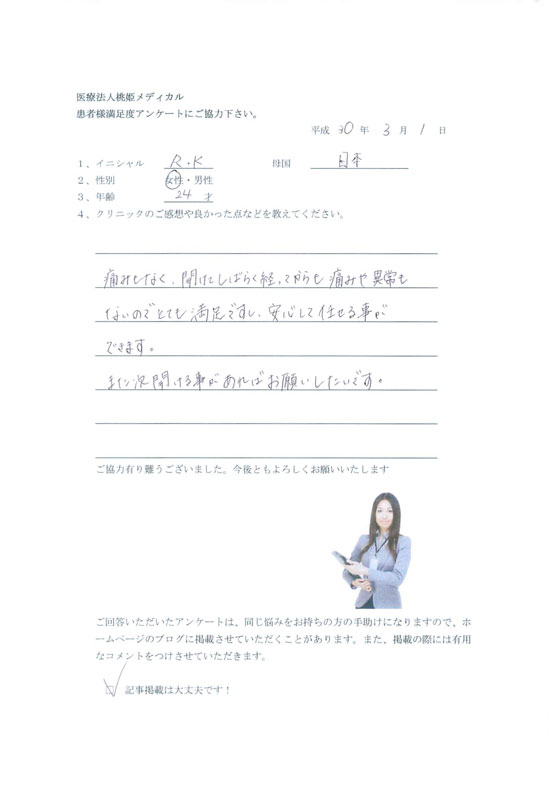 医療法人桃姫メディカル
患者様満足度アンケートにご協力下さい。
平成 30 年 3 月 1 日
1、イニシャル R・K 母国 日本
2、性別 女性・男性
3、年齢 24 才
4、クリニックのご感想や良かった点などを教えてください。
痛みもなく、開けてしばらく経ってからも痛みや異常も
ないのでとても満足ですし、安心して任せる事が
できます。
また次開ける事があればお願いしたいです。
ご協力有り難うございました。今後ともよろしくお願いいたします
ご回答いただいたアンケートは、同じ悩みをお持ちの方の手助けになりますので、ホ
ームページのブログに掲載させていただくことがあります。また、掲載の際には有用
なコメントをつけさせていただきます。
記事掲載は大丈夫です！